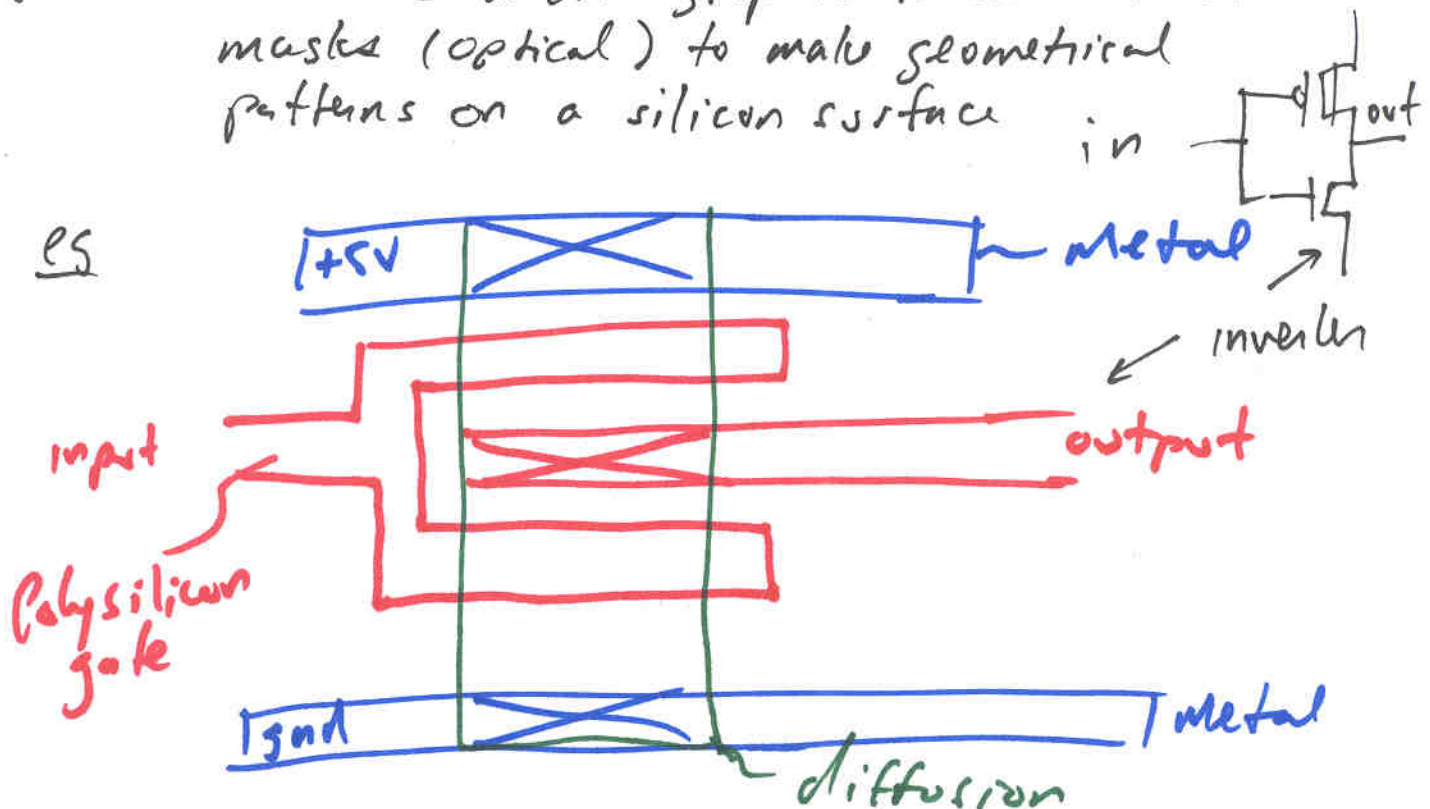 masks (optical) to make geometrical
patterns on a silicon surface
in
out
eg
+5V
Metal
inverter
input
output
Polysilicon
gate
gnd
Metal
diffusion